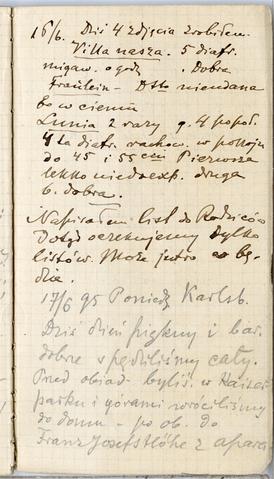 16/6. Dziś 4 zdjęcia zrobiłem.
Villa nasza. 5 diafr.
migaw. o godz . Dobra
Fräulein – Dtto nieudana
bo w cieniu
Lunia 2 razy g. 4 popoł.
4ta diafr. w pokoju
do 45 i 55 cm Pierwsza
lekko niedoexp. druga
b. dobra.
Napisałem list do Rodziców
Dotąd oczekujemy tylko
listów. Może jutro co bę-
dzie.
17/6 95 Poniedz Karlsb.
Dziś dzień piękny i bar.
dobrze spędziliśmy cały.
Przed obiad. byliś. w Kaiser
parku i górami wróciliśmy
do domu – po ob. do
Franz Josefshöhe z aparat